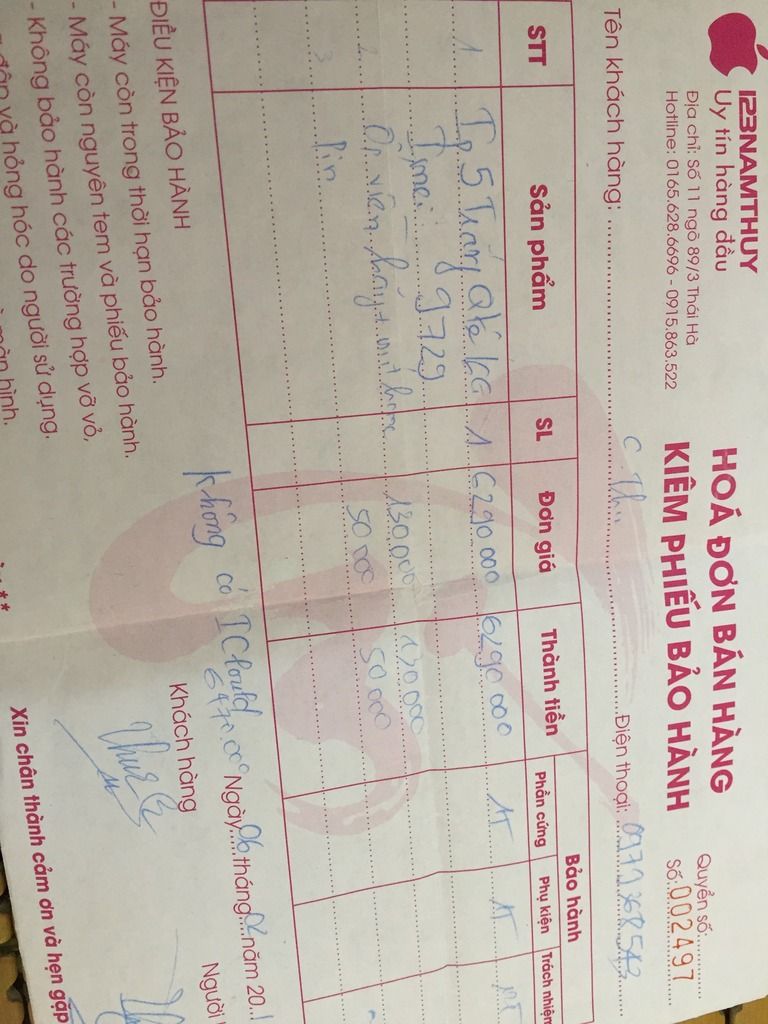 123NAMTHUY
Uy tín hàng đầu
Địa chỉ: Số 11 ngõ 89/3 Thái Hà
Hotline: 0165.628.6696 - 0915.863.522
HOÁ ĐƠN BÁN HÀNG
KIÊM PHIẾU BẢO HÀNH
Quyển số:
Số: 002497
Tên khách hàng: C Thu Điện thoại:
STT Sản phẩm SL Đơn giá Thành tiền Bảo hành
Phần cứng Phụ kiện Trách nhiệm
1 Ip 5 Trắng Qtế 1 6290 000 6290 000 1T 1T
Imei: 9729
2 Ốp viền 130.000 130.000
3 Pin 50 000 50.000
Không có ICloud
Ngày 06 tháng 02 năm 20
ĐIỀU KIỆN BẢO HÀNH
- Máy còn trong thời hạn bảo hành.
- Máy còn nguyên tem và phiếu bảo hành.
- Không bảo hành các trường hợp vỡ vỏ,
đập và hỏng hóc do người sử dụng.
màn hình.
Khách hàng
Người
Xin chân thành cảm ơn và hẹn gặp